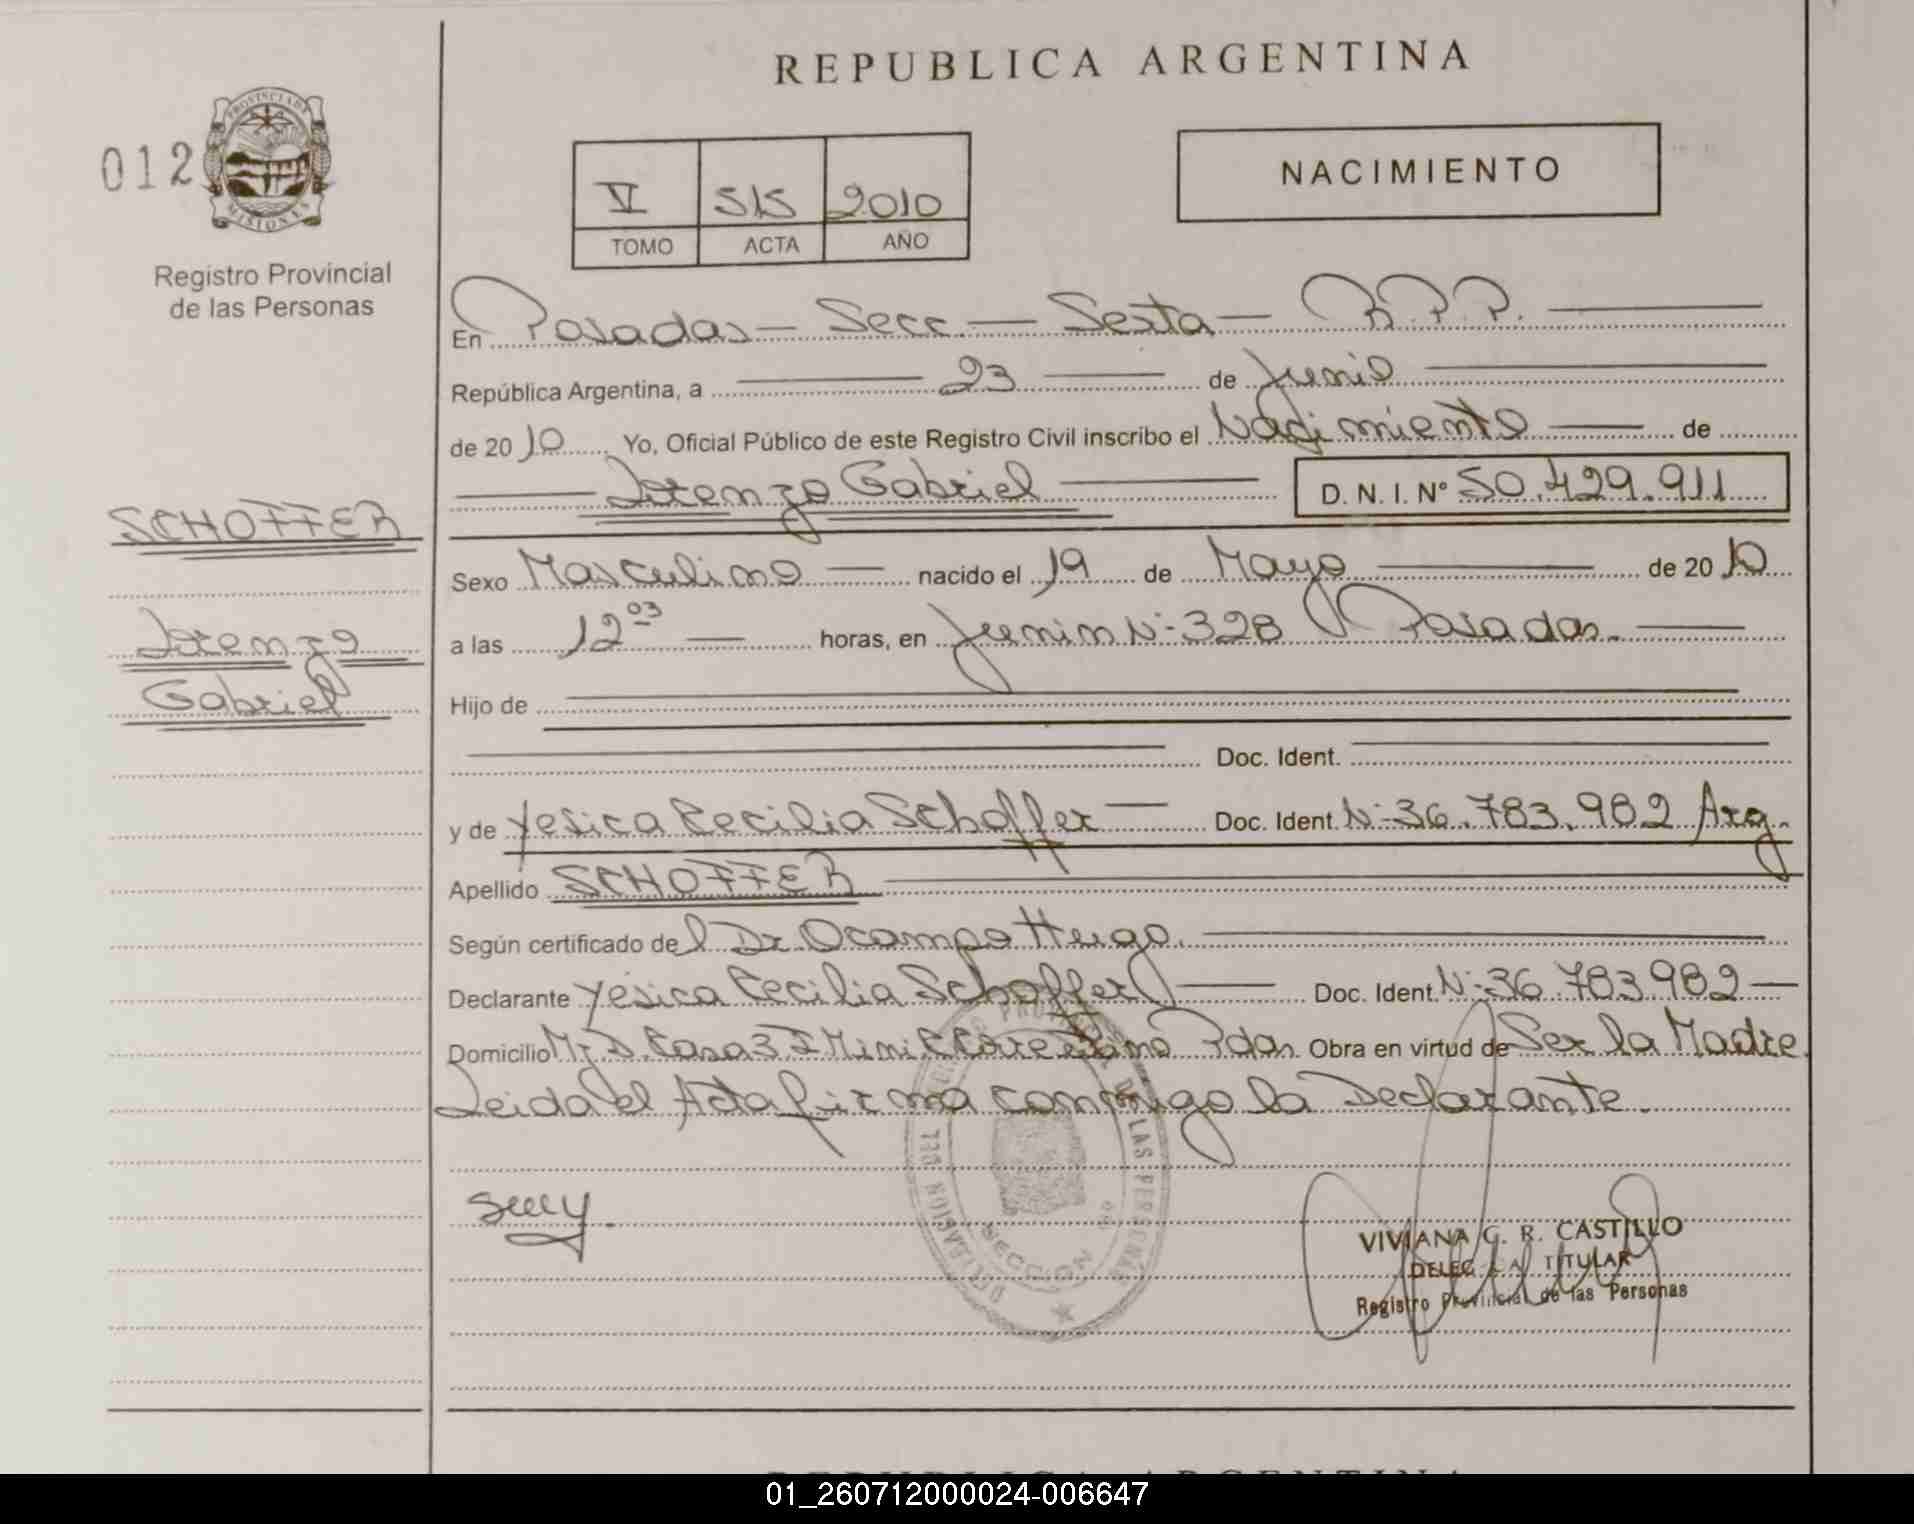 REPUBLICA ARGENTINA
012
PROVINCIA DE MISIONES
Registro Provincial
de las Personas
V 515 2010
TOMO ACTA AÑO
NACIMIENTO
En Posadas — Secc. — Sexta — R.P.P.
República Argentina, a 23 de Junio
de 2010 Yo, Oficial Público de este Registro Civil inscribo el Nacimiento de
Lorenzo Gabriel D. N. I. Nº 50.429.911
SCHOFFER
Lorenzo
Gabriel
Sexo Masculino — nacido el 19 de Mayo de 2010
a las 12 03 horas, en Junin Nº 328 Posadas.
Hijo de
Doc. Ident.
y de Yesica Cecilia Schoffer Doc. Ident. Nº 36.783.982 Arg.
Apellido SCHOFFER
Según certificado del Dr. Ocampo Hugo.
Declarante Yesica Cecilia Schoffer Doc. Ident. Nº 36.783982
Domicilio Casa 3 Pdas. Obra en virtud de Ser la Madre.
Leida el Acta firma conmigo la Declarante.
DELEGACION DEL REGISTRO PROVINCIAL DE LAS PERSONAS
SECCION 6ta
VIVIANA G. R. CASTILLO
DELEGADA TITULAR
Registro Provincial de las Personas
REPUBLICA ARGENTINA
01_260712000024-006647